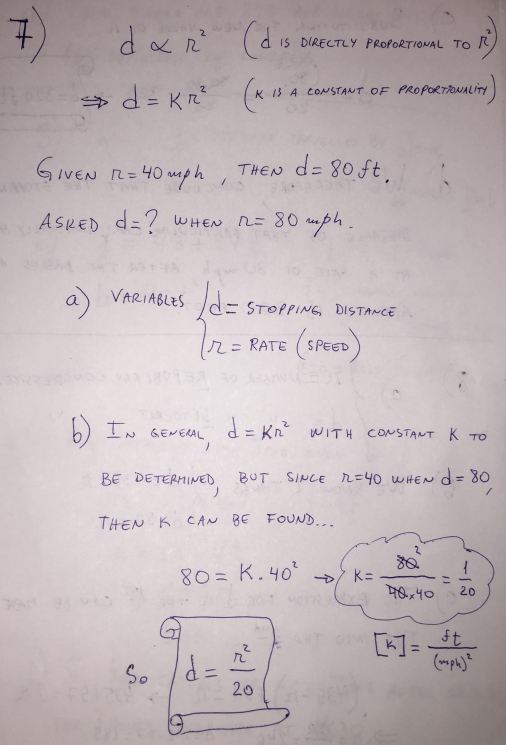 7)
d ∝ r² (d IS DIRECTLY PROPORTIONAL TO r²)
⇒ d = Kr² (K IS A CONSTANT OF PROPORTIONALITY)
GIVEN r = 40 mph, THEN d = 80 ft.
ASKED d = ? WHEN r = 80 mph.
a) VARIABLES { d = STOPPING DISTANCE
r = RATE (SPEED)
b) IN GENERAL, d = Kr² WITH CONSTANT K TO
BE DETERMINED, BUT SINCE r = 40 WHEN d = 80,
THEN K CAN BE FOUND...
80 = K . 40² → K = 80 2 / 40 x 40 = 1/20
[K] = ft / (mph)²
So d = r² / 20